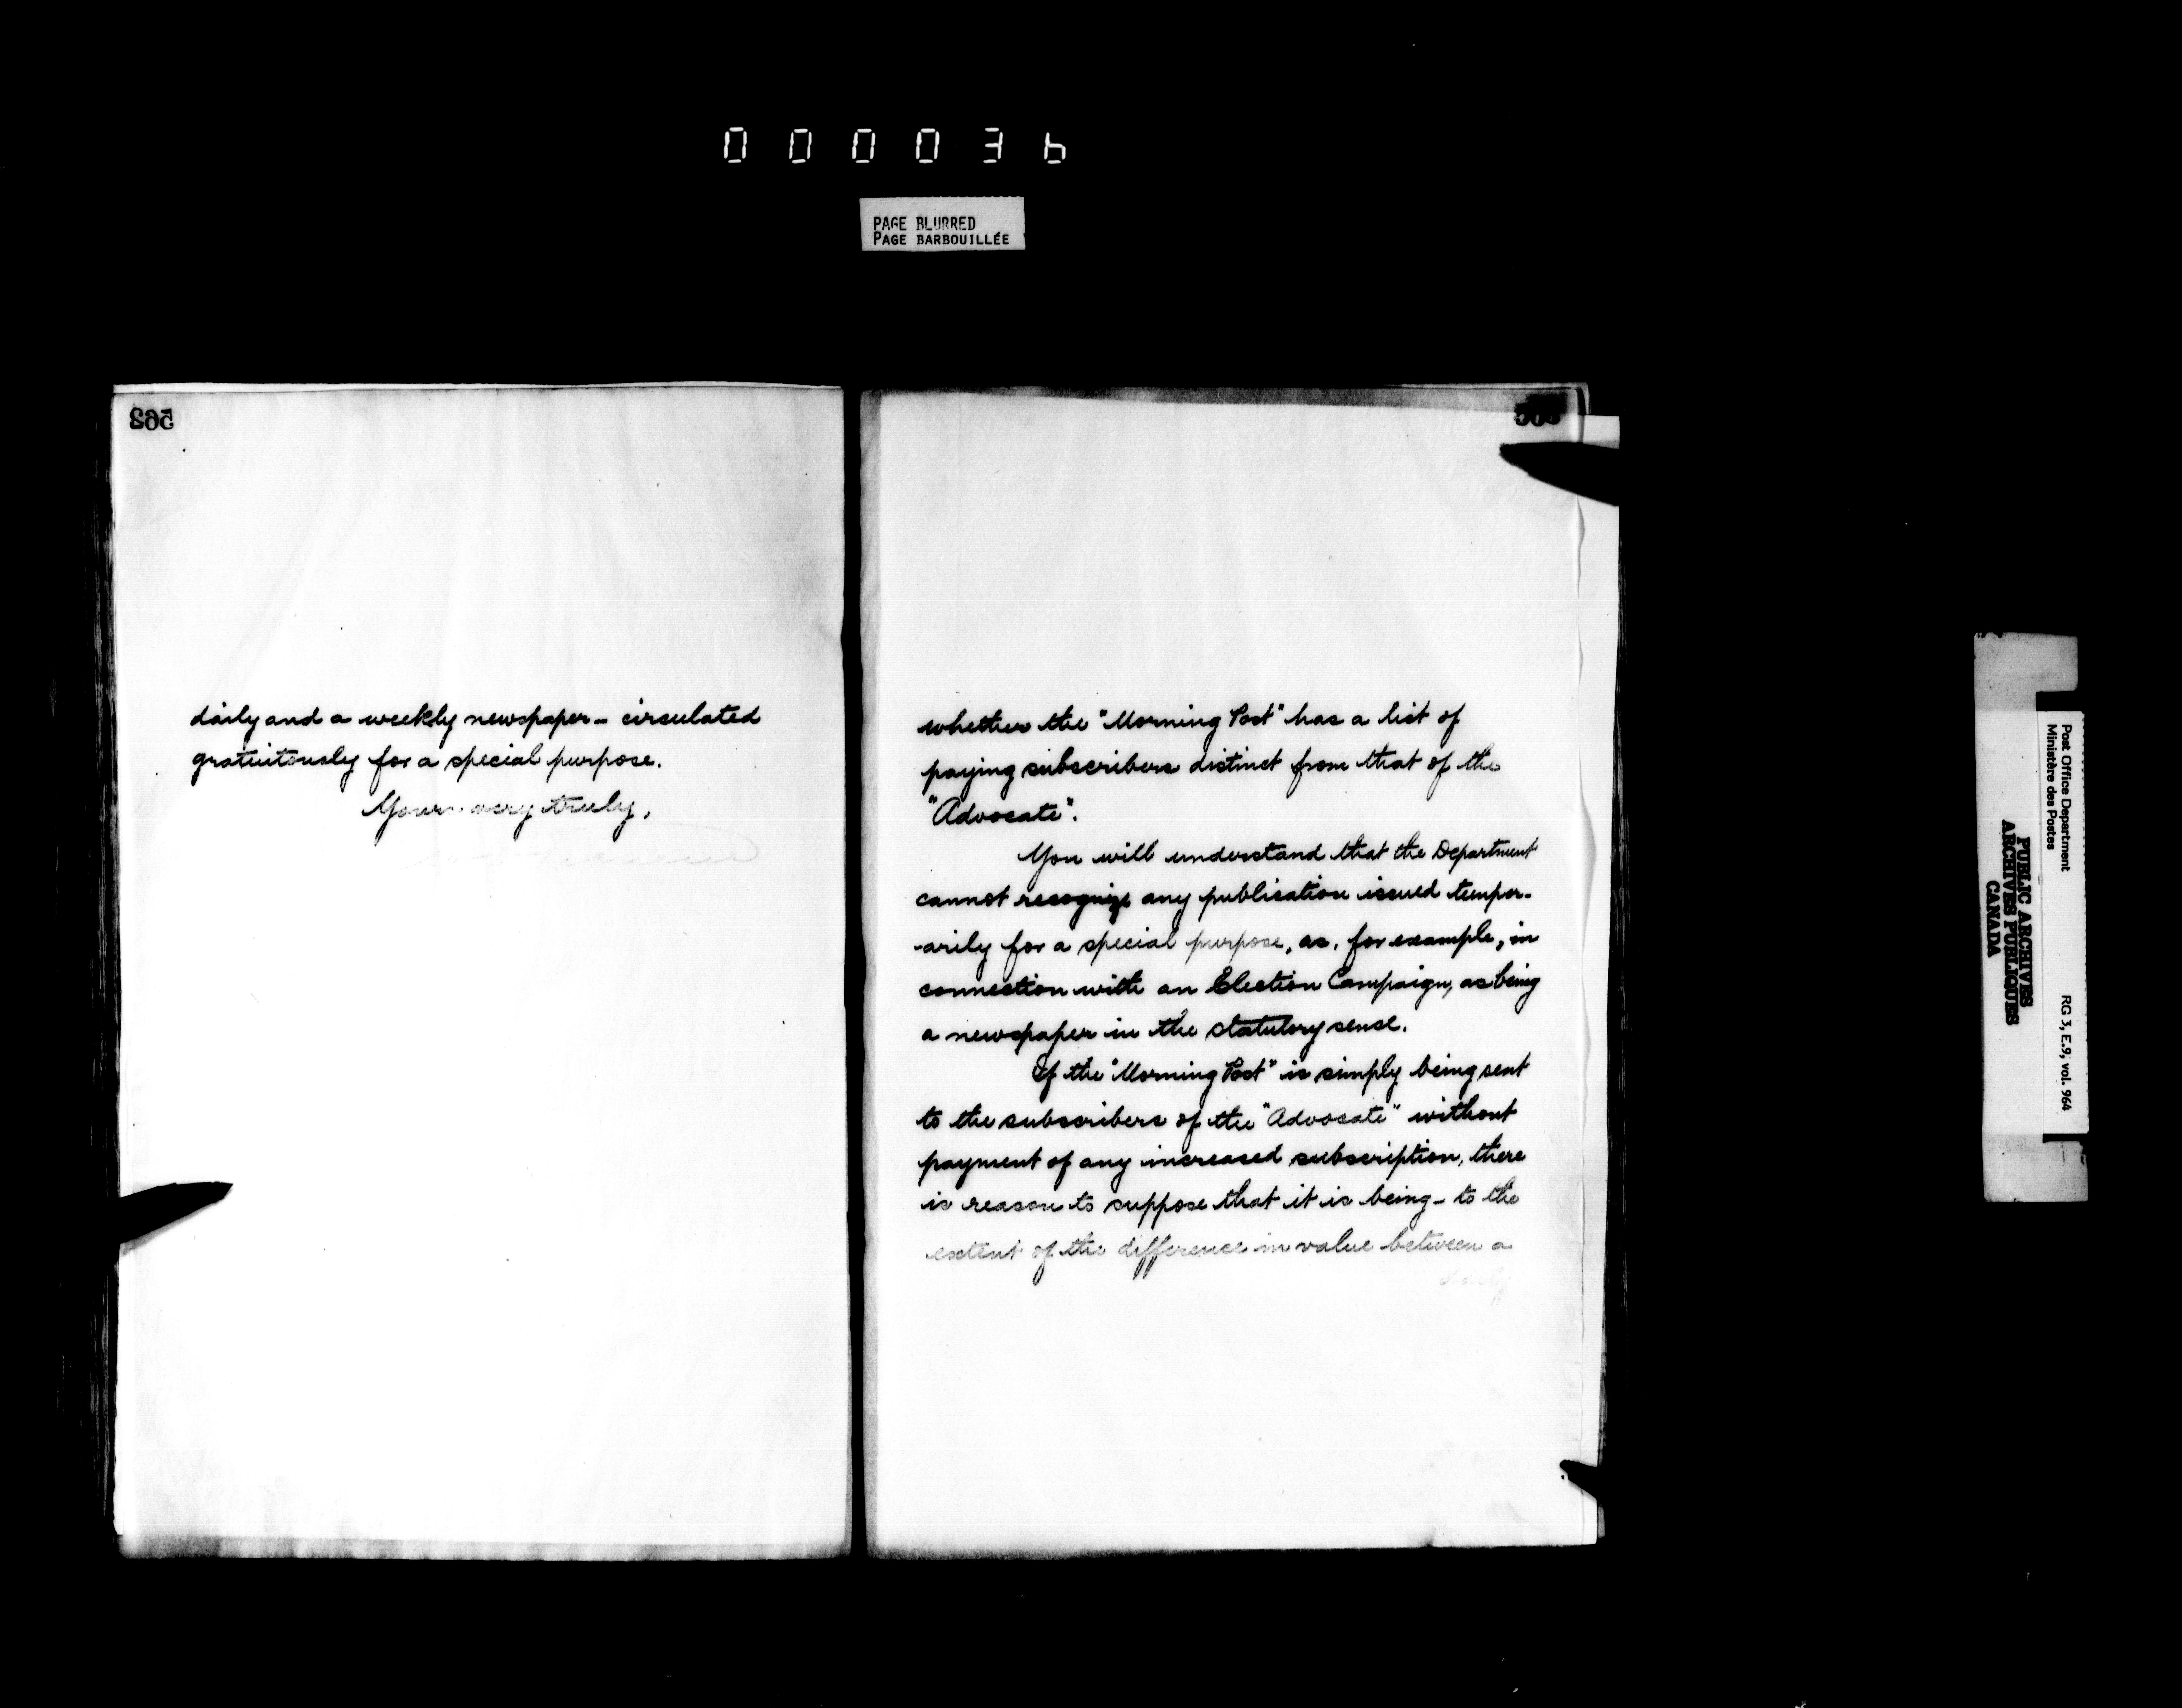 000036
PAGE BLURRED
PAGE BARBOUILLÉE
562
daily and a weekly newspaper - circulated
gratuitously for a special purpose.
Yours very truly,
whether the "Morning Post" has a list of
paying subscribers distinct from that of the
"Advocate".
You will understand that the Department
cannot recognize any publication issued tempor-
-arily for a special purpose, as, for example, in
connection with an Election Campaign, as being
a newspaper in the statutory sense.
If the "Morning Post" is simply being sent
to the subscribers of the "Advocate" without
payment of any increased subscription, there
is reason to suppose that it is being - to the
extent of the difference in value between a
daily
Post Office Department
Ministère des Postes
RG 3, E.9, vol. 964
PUBLIC ARCHIVES
ARCHIVES PUBLIQUES
CANADA